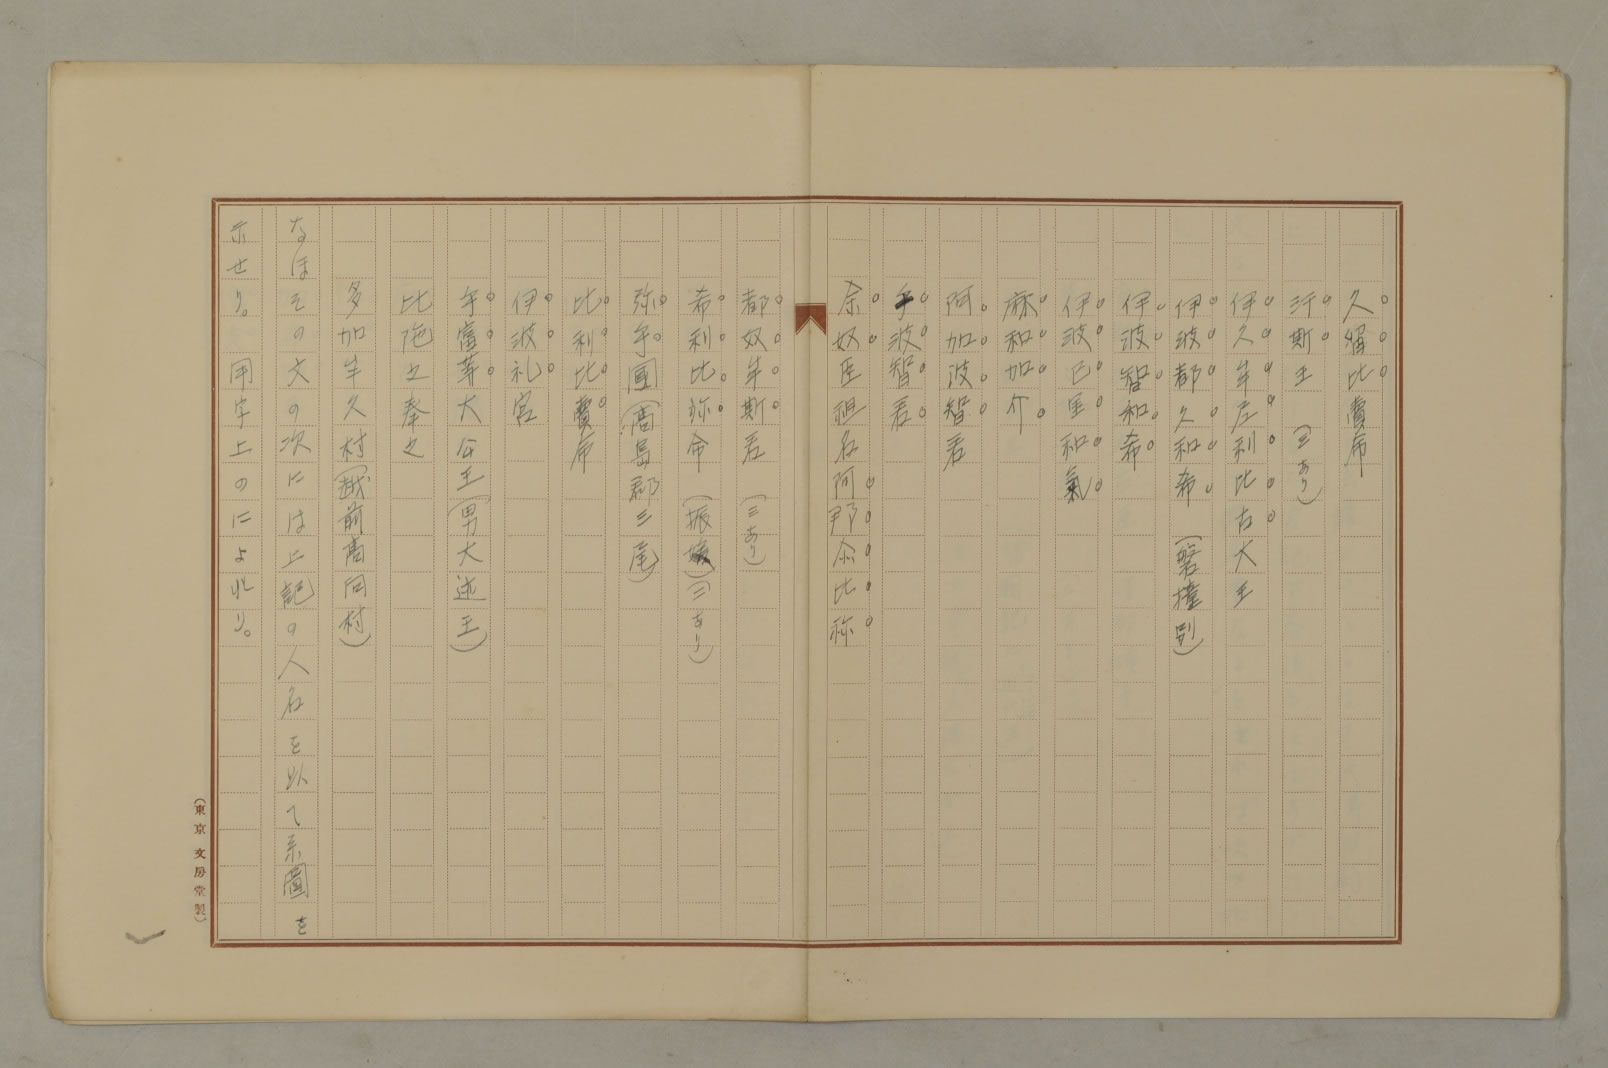 久留比賣命
汙斯王 (三あり)
伊久牟尼利比古大王
伊波都久和希 (磐撞別)
伊波智和希
伊波己里和氣
麻和加介
阿加波智君
乎波智君
余奴臣祖名阿那尒比弥
都奴牟斯君 (三あり)
布利比弥命 (振媛)(二あり)
弥乎國(高島郡三尾)
比利比賣命
伊波礼宮
乎富等大公王(男大迹王)
比陀之奉之
多加牟久村(越前高向村)
なほその文の次には上記の人名を以て系圖を
示せり。用字上のによれり。
(東京 文房堂製)